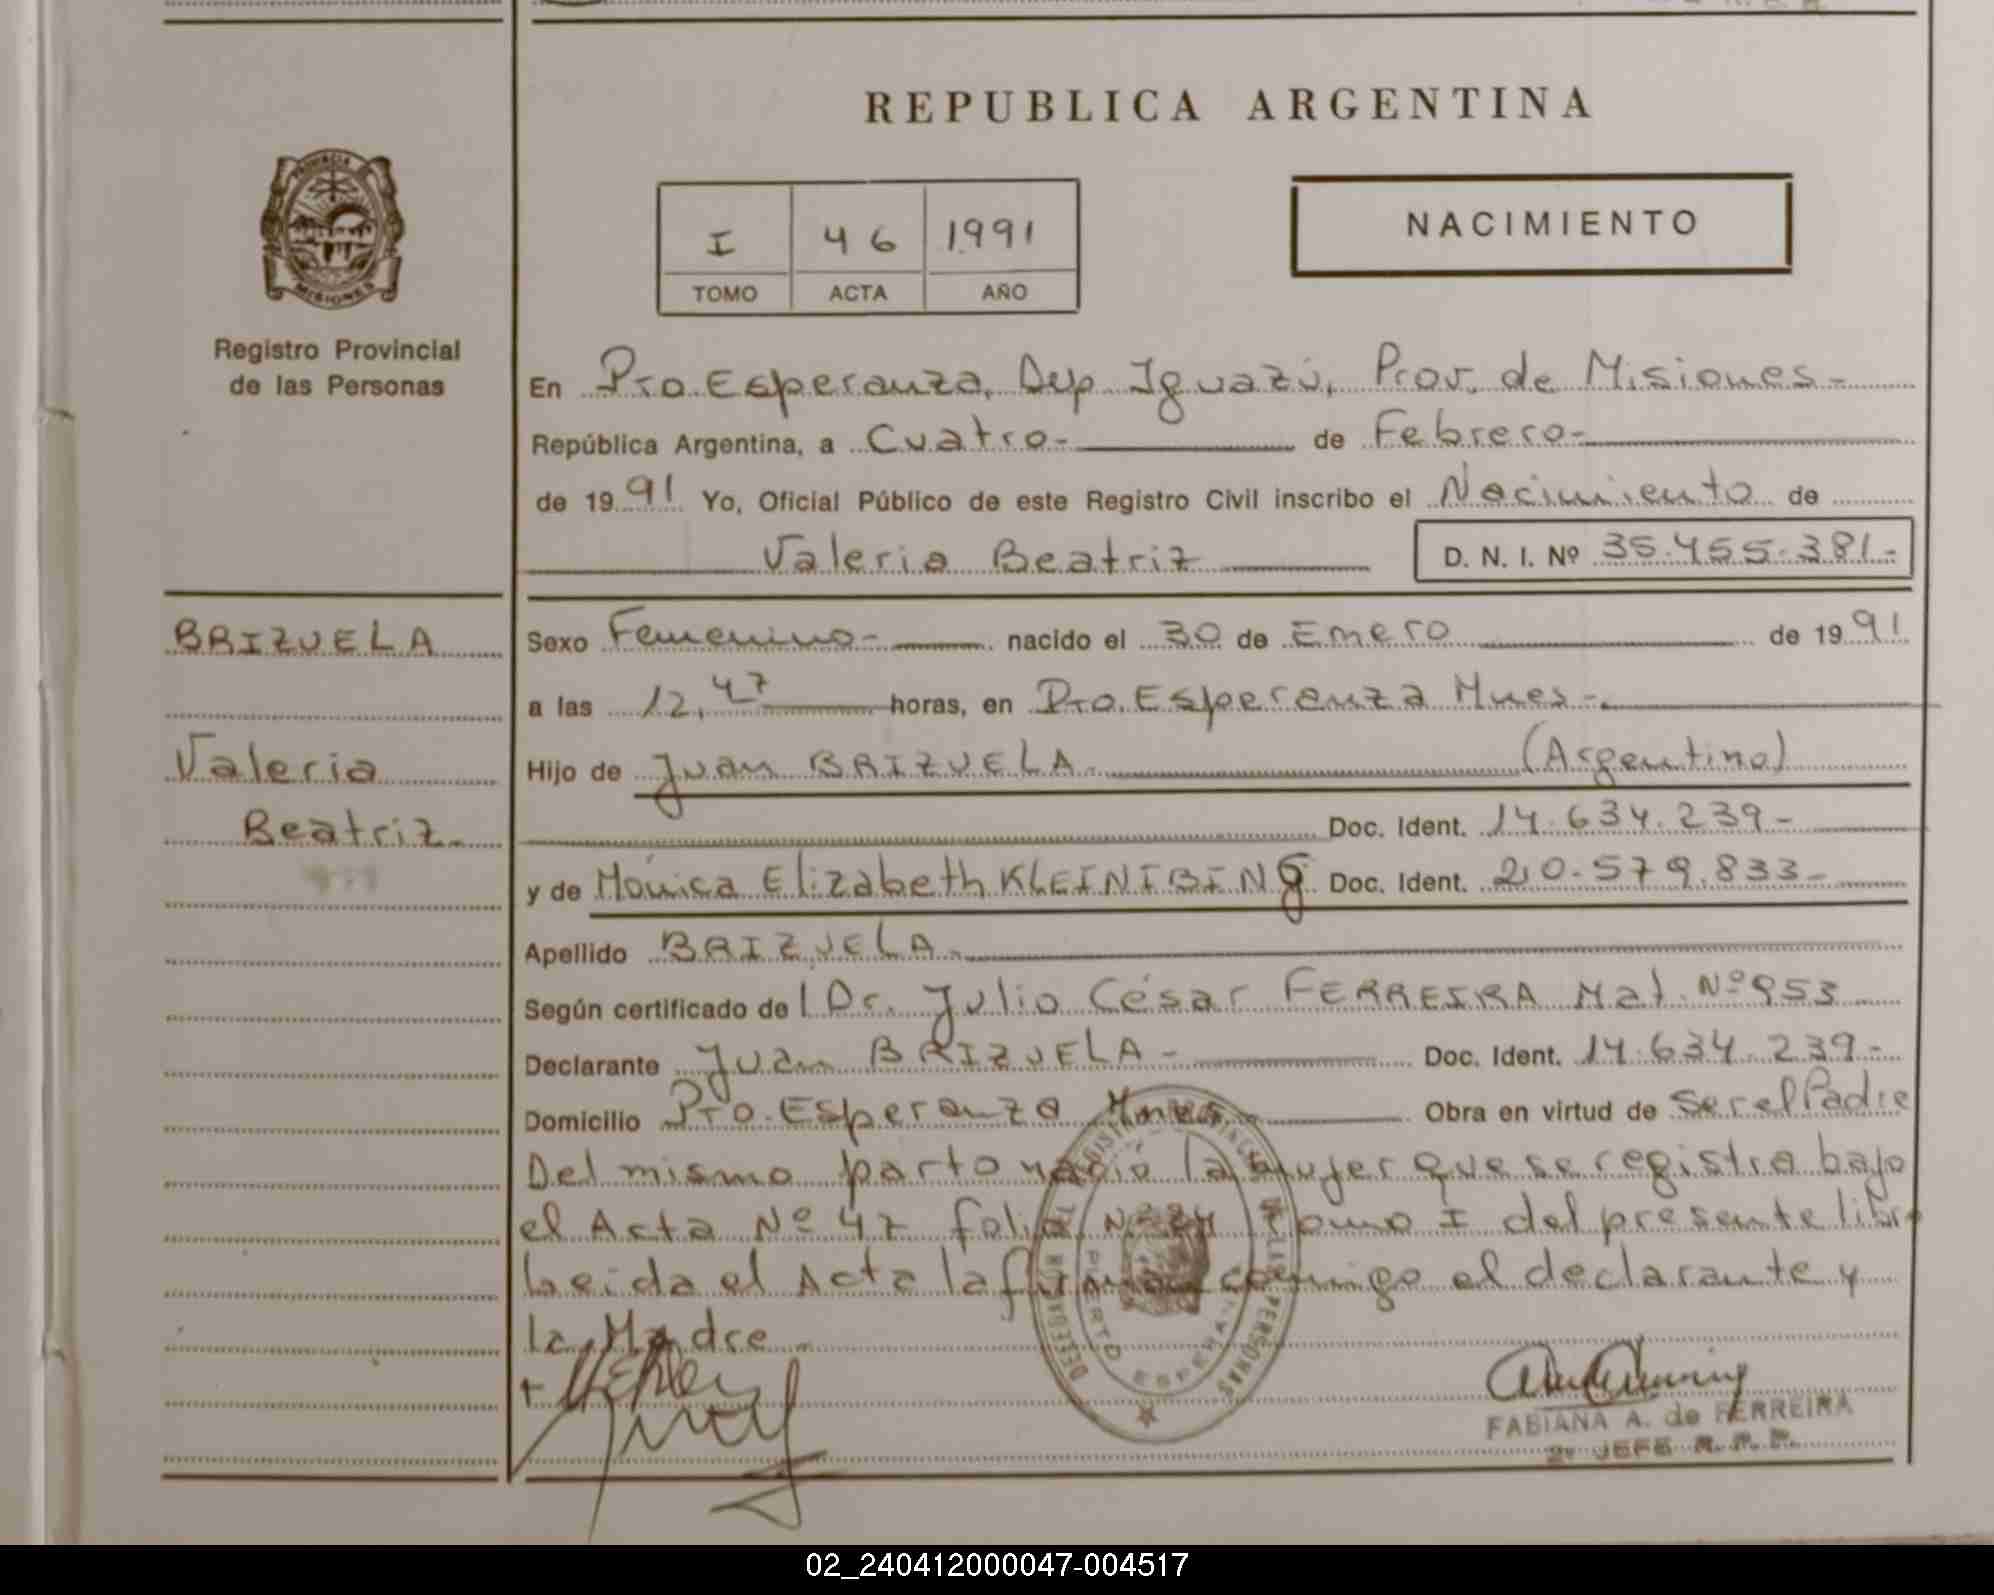 REPUBLICA ARGENTINA
PROVINCIA
MISIONES
Registro Provincial
de las Personas
I 46 1991
TOMO ACTA AÑO
NACIMIENTO
En Pto. Esperanza, Dep Iguazú, Prov. de Misiones-
República Argentina, a Cuatro- de Febrero-
de 1991 Yo, Oficial Público de este Registro Civil inscribo el Nacimiento de
Valeria Beatriz D. N. I. Nº 35.455.381-
BRIZUELA
Valeria
Beatriz-
Sexo Femenino- nacido el 30 de Enero de 1991
a las 12,47 horas, en Pto. Esperanza Mnes-
Hijo de Juan BRIZUELA- (Argentino)
Doc. Ident. 14.634.239-
y de Mónica Elizabeth KLEINIBING Doc. Ident. 20.579.833-
Apellido BRIZUELA-
Según certificado de l Dr. Julio César FERREIRA Mat. Nº 953
Declarante Juan BRIZUELA- Doc. Ident. 14.634.239-
Domicilio Pto. Esperanza Mnes- Obra en virtud de ser el Padre
Del mismo parto nació la mujer que se registra bajo
el Acta Nº 47 folio Nº 24 tomo I del presente libro
Leida el Acta la firman conmigo el declarante y
la Madre-
PUERTO ESPERANZA
PERSONAS
FABIANA A. de FERREIRA
2º JEFE R. P. P.
02_240412000047-004517